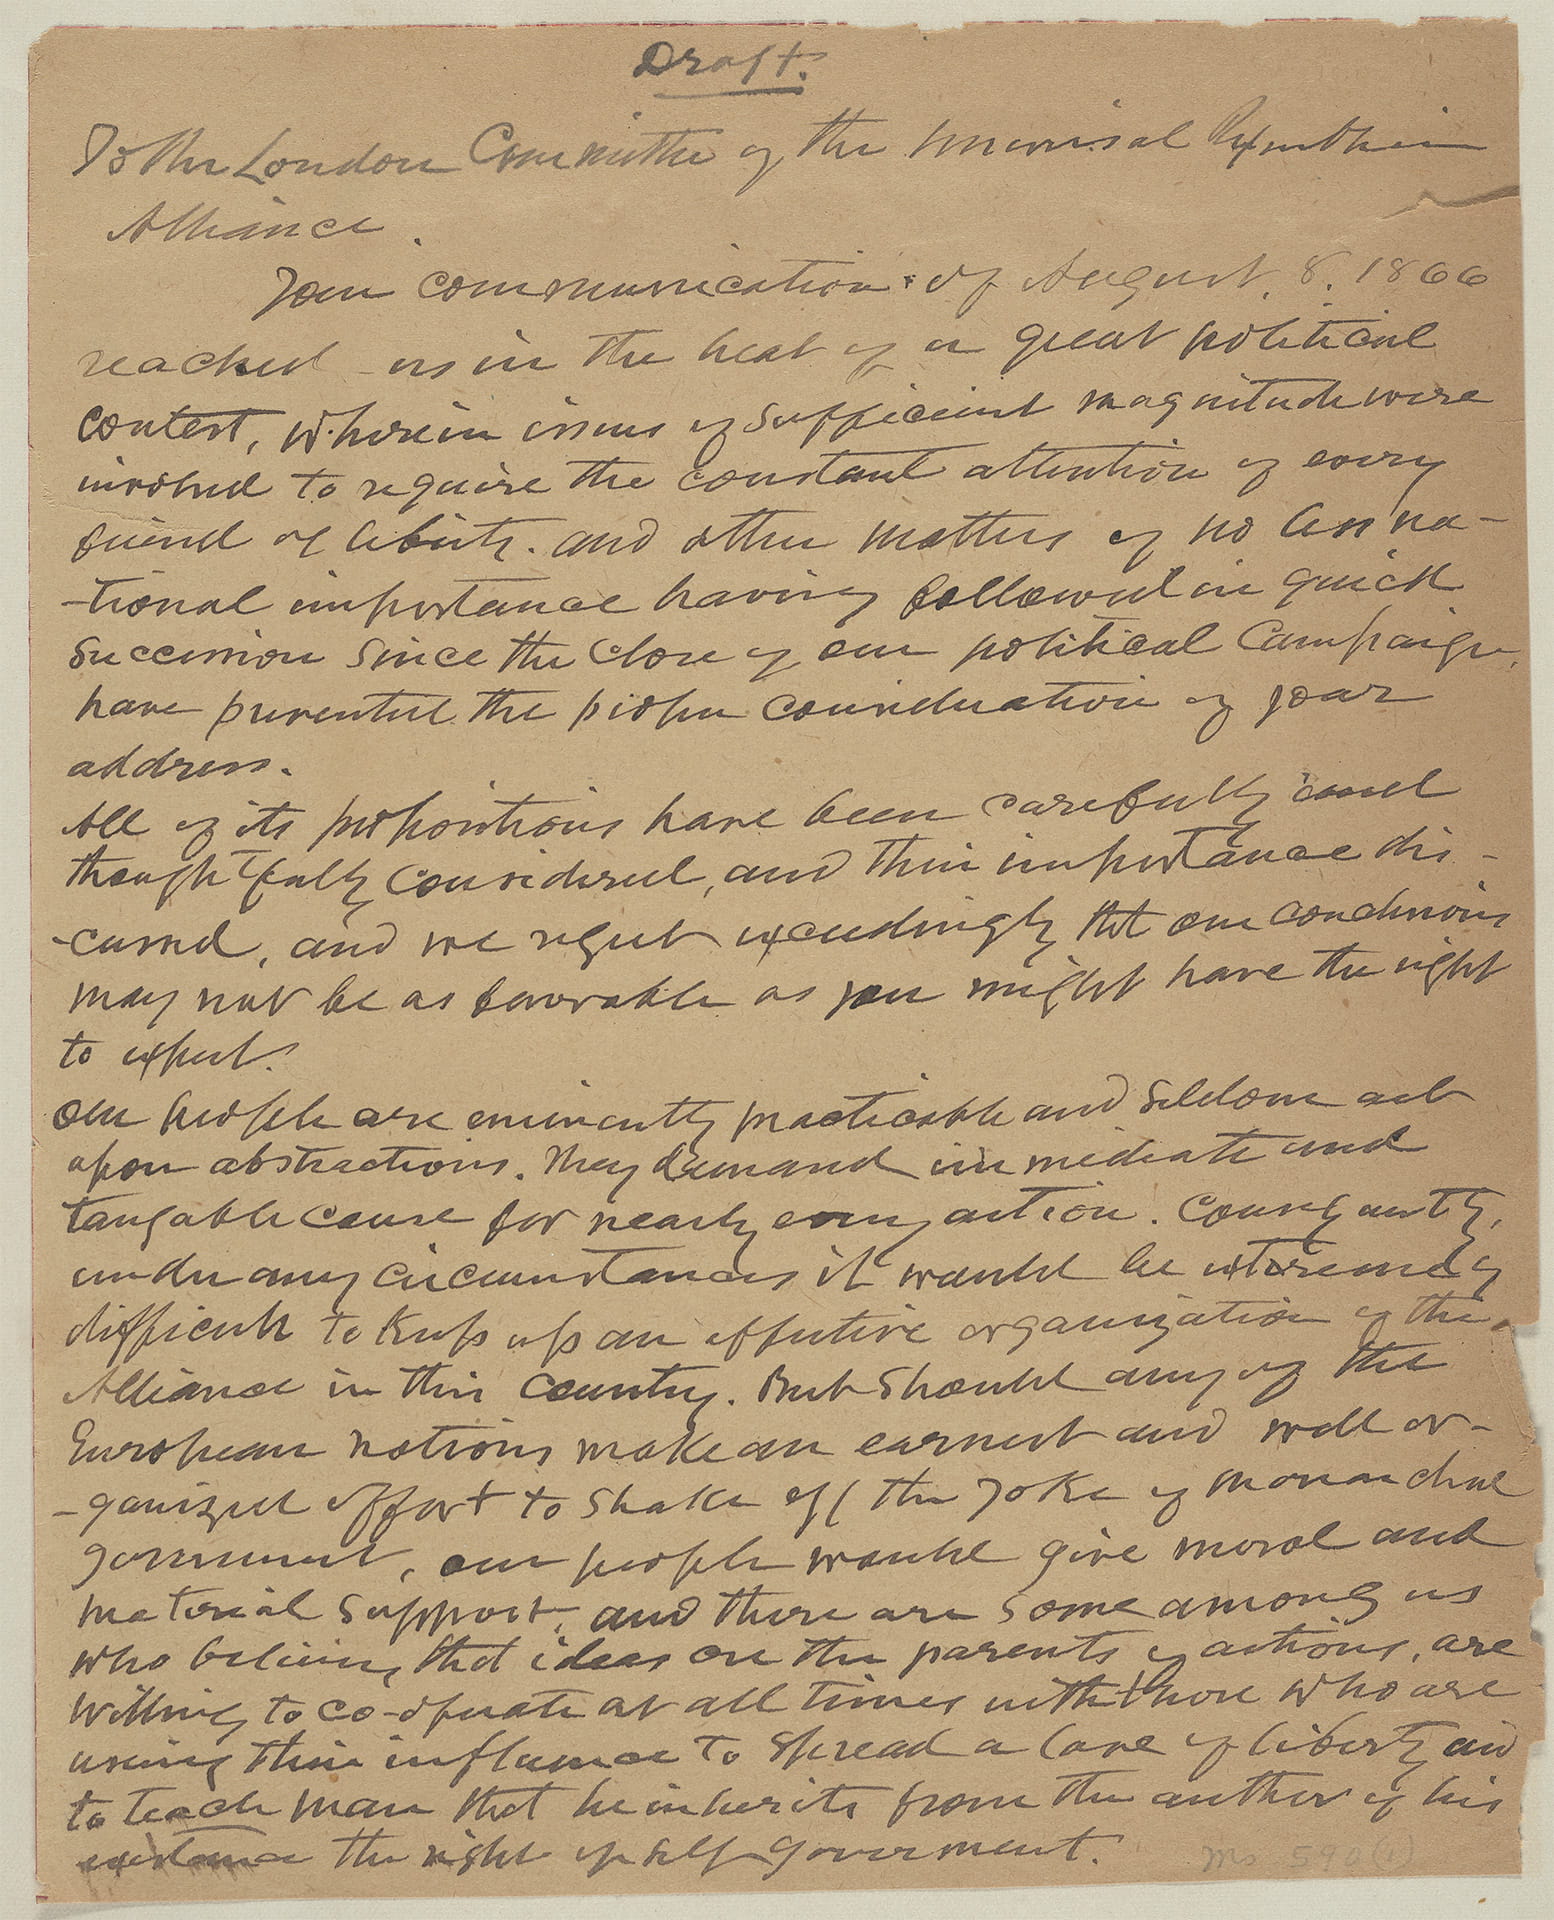 Draft.
To the London Committee of the Universal Republican
Alliance.
Your communication of August. 8. 1866
reached us in the heat of a great political
contest, wherein issues of sufficient magnitude were
involved to require the constant attention of every
friend of liberty. and other matters of no less na-
-tional importance having followed in quick
succession since the close of our political Campaign,
have prevented the proper consideration of your
address.
All of its propositions have been carefully and
thoughtfully considered, and their importance dis-
-cussed, and we regret exceedingly that our conclusions
may not be as favorable as you might have the right
to expect.
Our people are eminently practicable and seldom act
upon abstractions. They demand immediate and
tangable cause for nearly every action. Consequently,
under any circumstances it would be extremely
difficult to keep up an effective organization of the
Alliance in this country. But should any of the
European nations make an earnest and well or-
-ganized effort to shake off the yoke of monarchial
government, our people would give moral and
material support, and there are some among us
who believing that ideas are the parents of actions, are
willing to co-operate at all times with those who are
using their influence to spread a love of liberty and
to teach man that he inherits from the author of his
existence the right of self government.
Ms 590 (1)